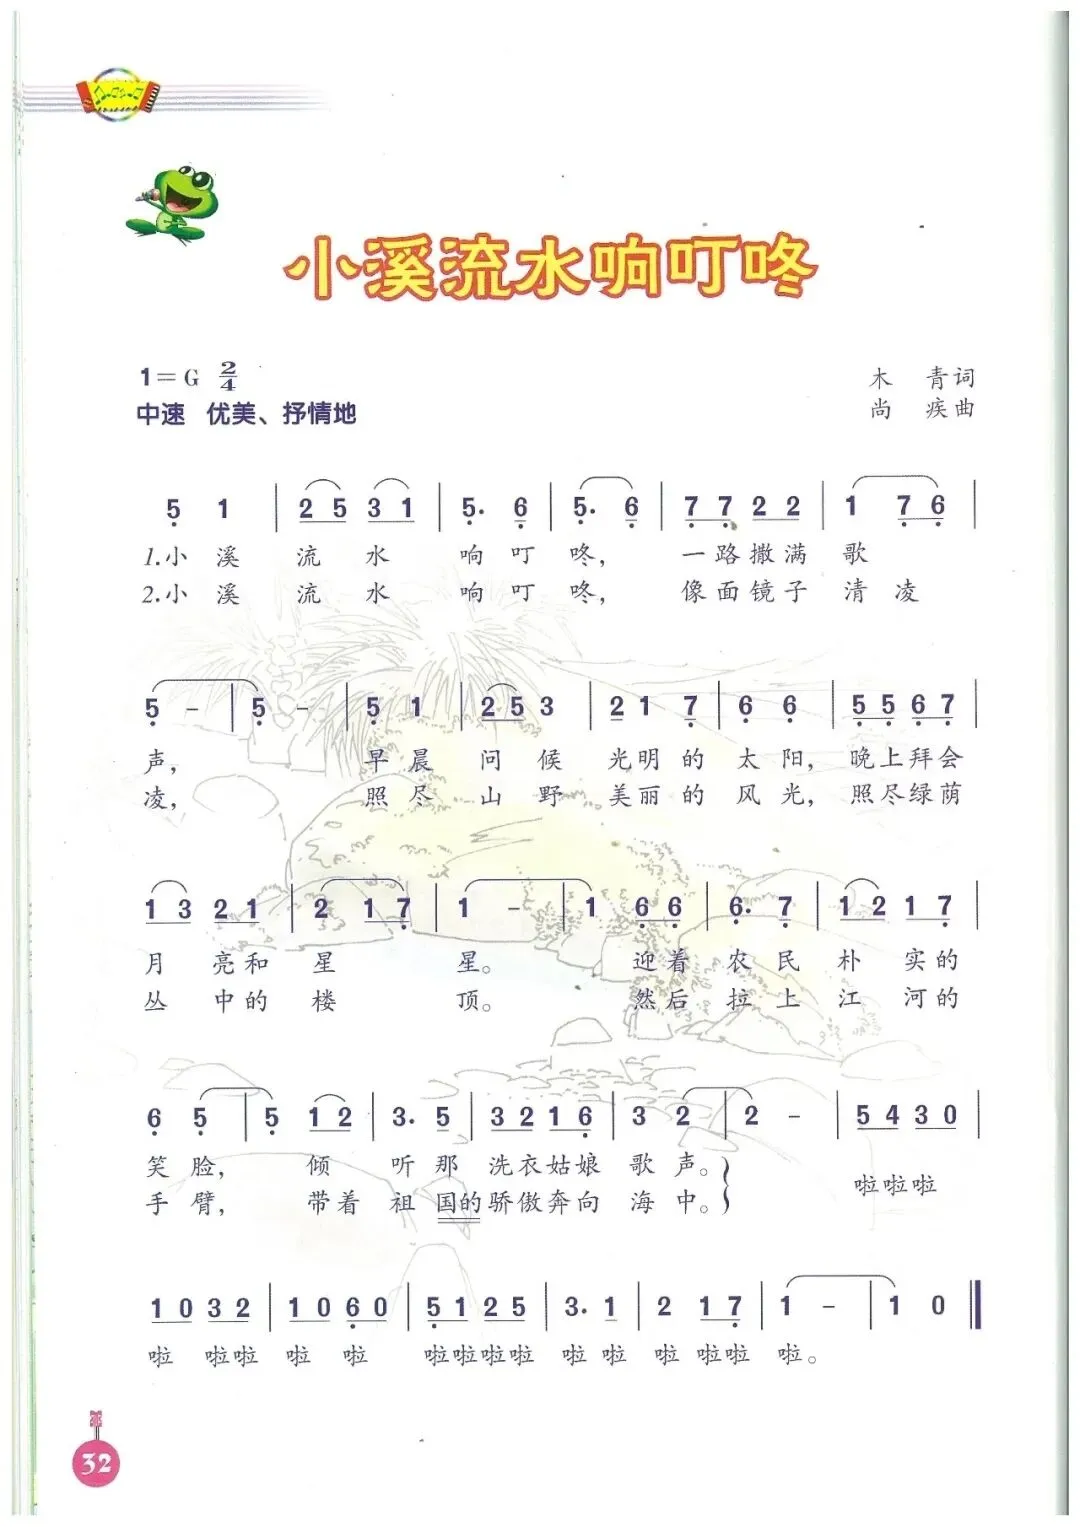 小溪流水响叮咚
1=G 2/4
木 青词
中速 优美、抒情地
尚 疾曲
5 1 | 2 5 3 1 | 5. 6 | 5. 6 | 7 7 2 2 | 1 7 6 |
1.小 溪 流 水 响 叮 咚, 一 路 撒 满 歌
2.小 溪 流 水 响 叮 咚, 像 面 镜 子 清 凌
5 - | 5 - | 5 1 | 2 5 3 | 2 1 7 | 6 6 | 5 5 6 7 |
声, 早 晨 问 候 光 明 的 太 阳, 晚 上 拜 会
凌, 照 尽 山 野 美 丽 的 风 光, 照 尽 绿 荫
1 3 2 1 | 2 1 7 | 1 - | 1 6 6 | 6. 7 | 1 2 1 7 |
月 亮 和 星 星。 迎 着 农 民 朴 实 的
丛 中 的 楼 顶。 然 后 拉 上 江 河 的
6 5 | 5 1 2 | 3. 5 | 3 2 1 6 | 3 2 | 2 - | 5 4 3 0 |
笑 脸, 倾 听 那 洗 衣 姑 娘 歌 声。
啦 啦 啦
手 臂, 带 着 祖 国 的 骄 傲 奔 向 海 中。
1 0 3 2 | 1 0 6 0 | 5 1 2 5 | 3. 1 | 2 1 7 | 1 - | 1 0
啦 啦 啦 啦 啦 啦 啦 啦 啦 啦 啦 啦 啦 啦 啦。
32